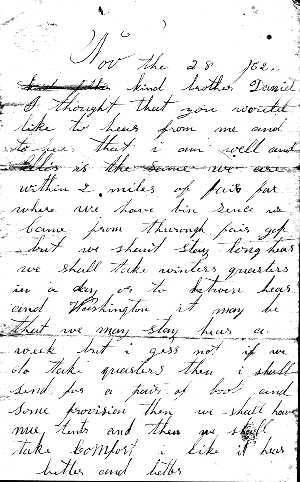 Nov the 28 /62
kind brother Daniel
I thought that you would
like to hear from me and
to hear that i am well and
Ellis is the same we are
within 2 miles of fair fax
where we have bin sence we
Came from through fairs gap
but we shant stay long hear
we shall take winters quarters
in a day or to between hear
and Washington it may be
that we may stay hear a
week but i gess not if we
do take quarters then i shall
send for a pair of boots and
some provision then we shall have
nue tents and then we shall
take Comfort i like it hear
better and better